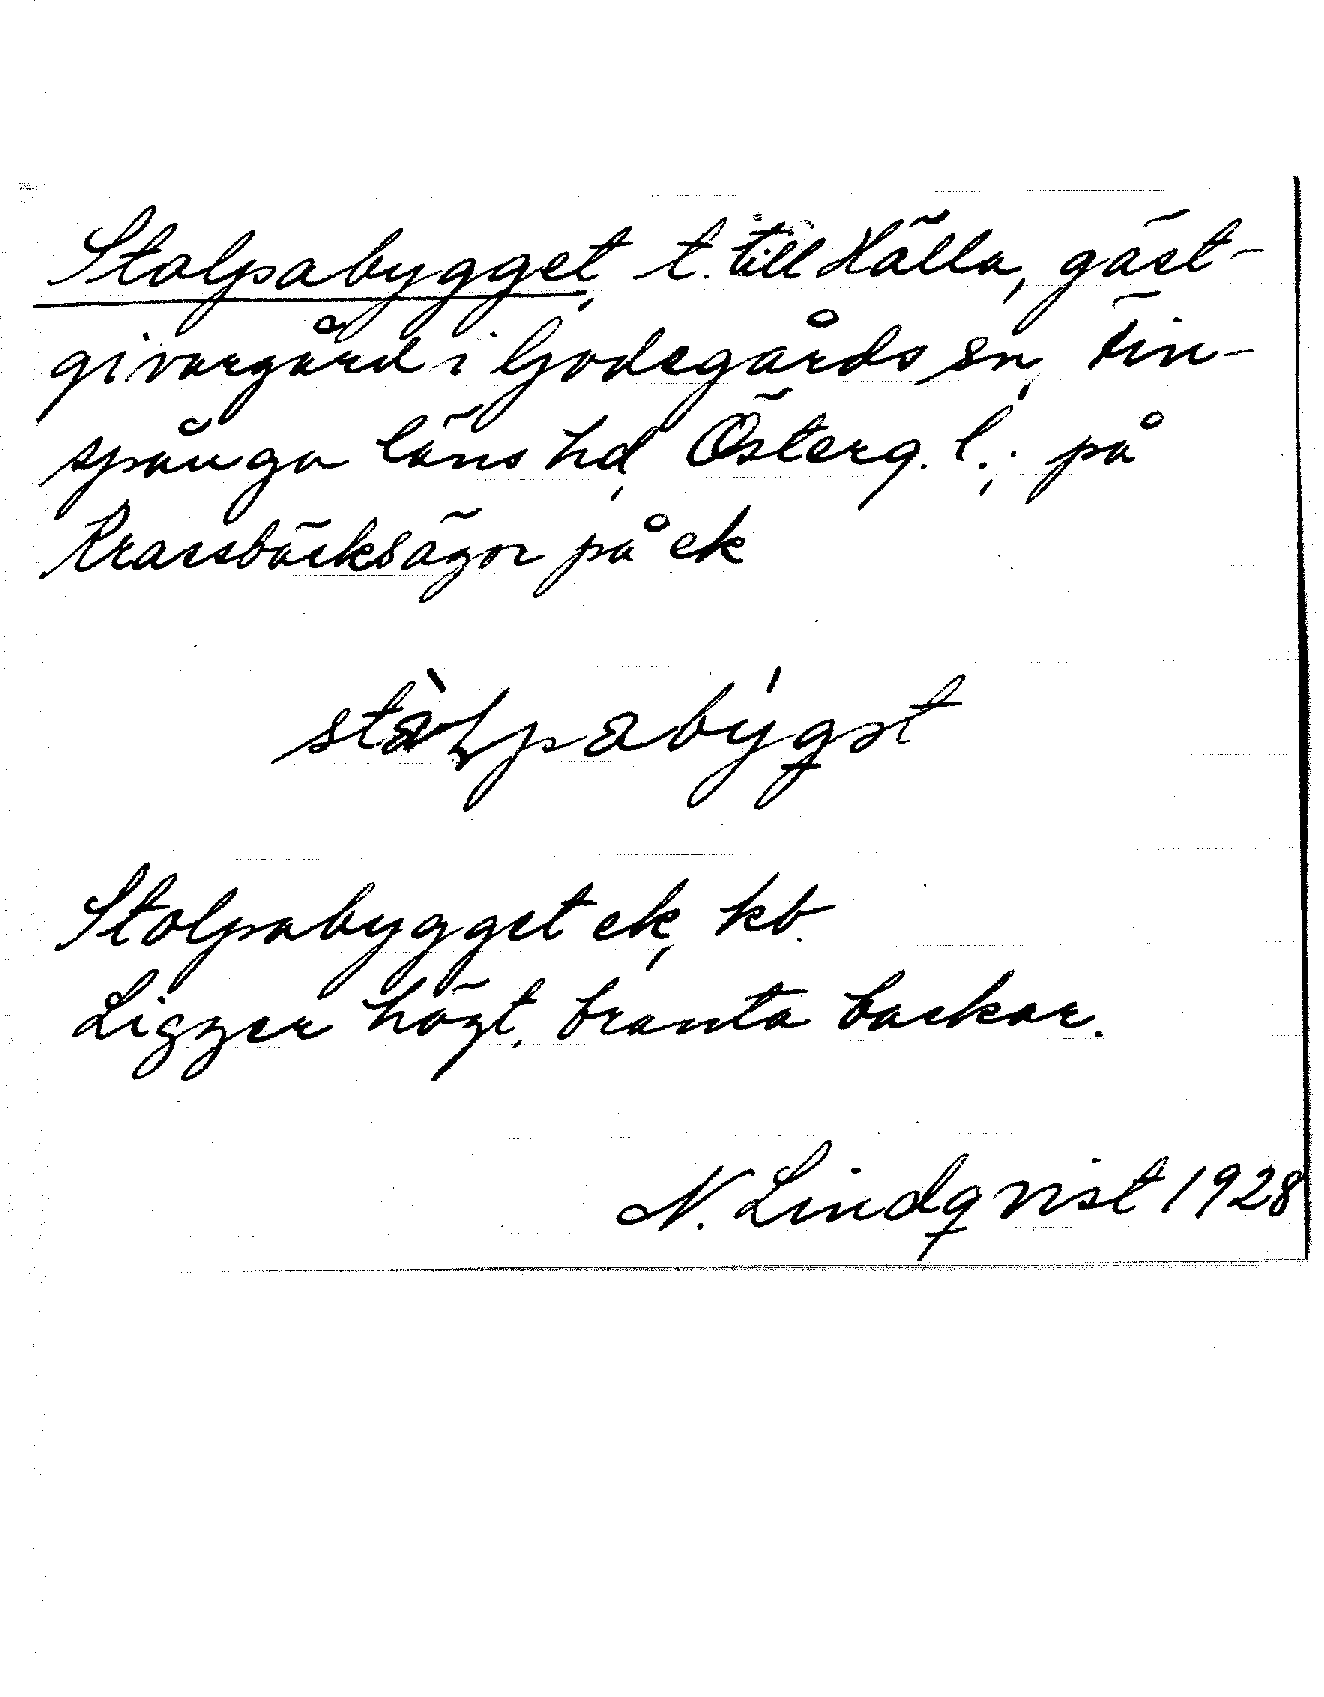 Stolpabygget, t. till Hälla, gäst-
givargård i Godegårds sn, Fin-
spånga läns hd, Österg. l.; på
Krassbäcksägor på ek
Stolpabygget ek, kb.
Ligger högt, branta backar.
N. Lindqvist 1928